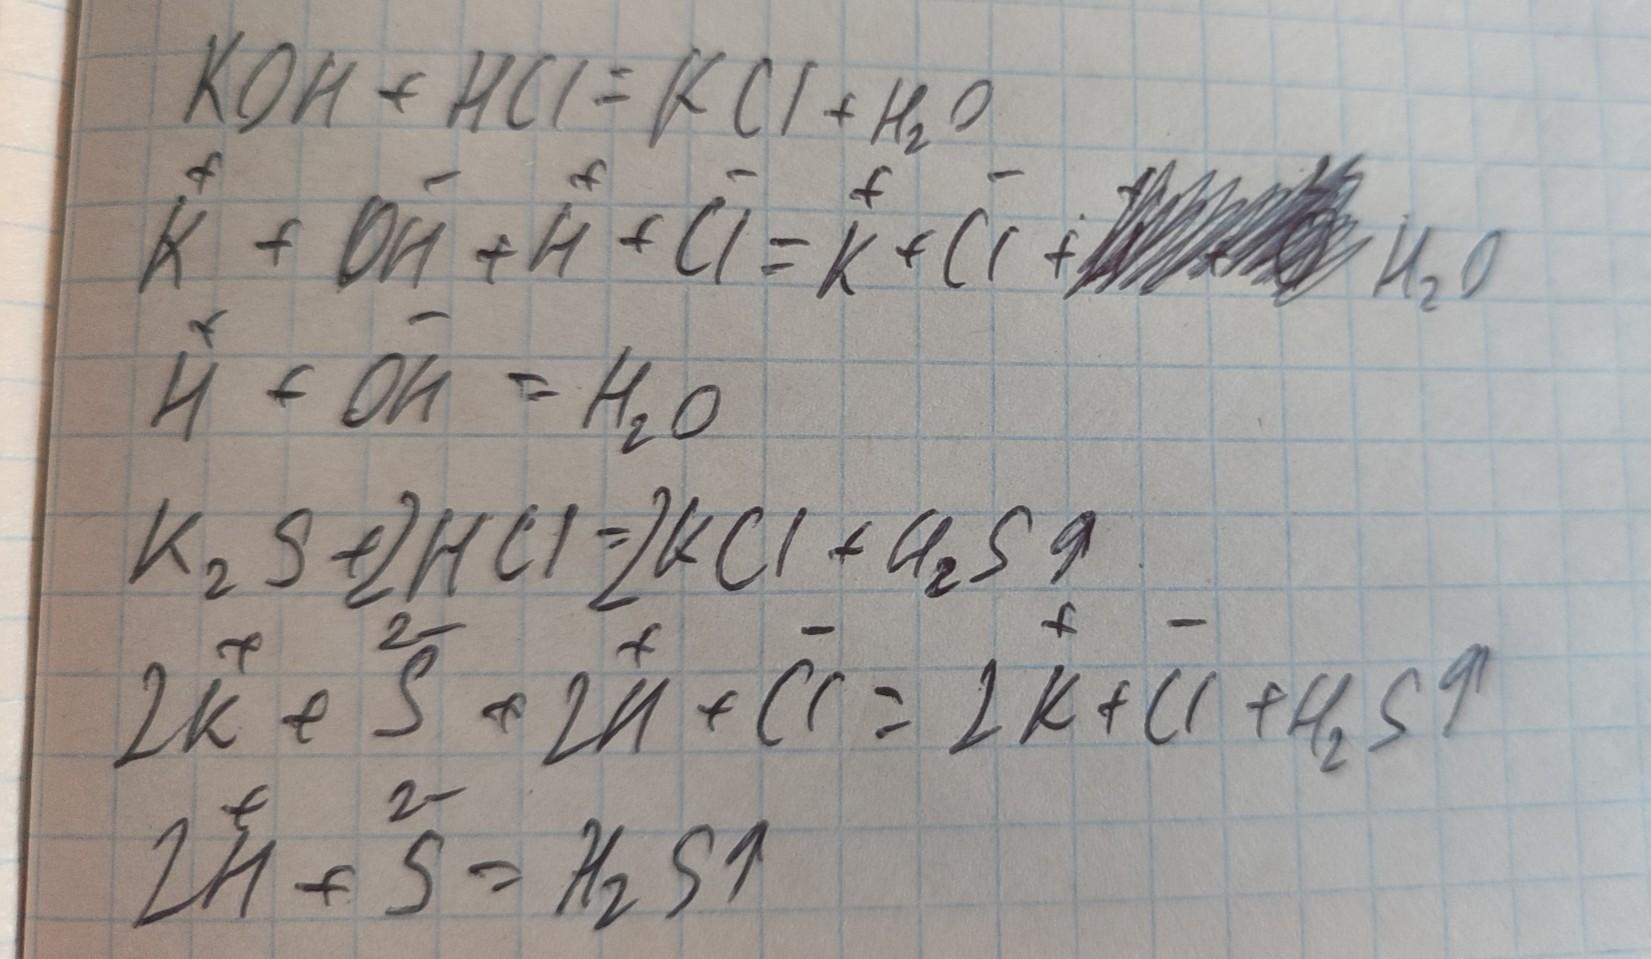 KOH + HCl = KCl + H₂O
K⁺ + OH⁻ + H⁺ + Cl⁻ = K⁺ + Cl⁻ + H₂O
H⁺ + OH⁻ = H₂O
K₂S + 2HCl = 2KCl + H₂S↑
2K⁺ + S²⁻ + 2H⁺ + Cl⁻ = 2K⁺ + Cl⁻ + H₂S↑
2H⁺ + S²⁻ = H₂S↑